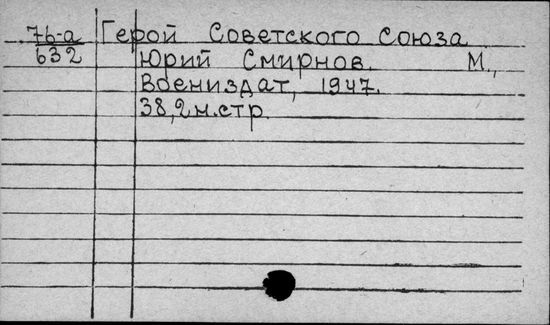 76-а Герой Советского Союза
632 Юрий Смирнов. М.,
Воениздат, 1947.
38,2н.стр.